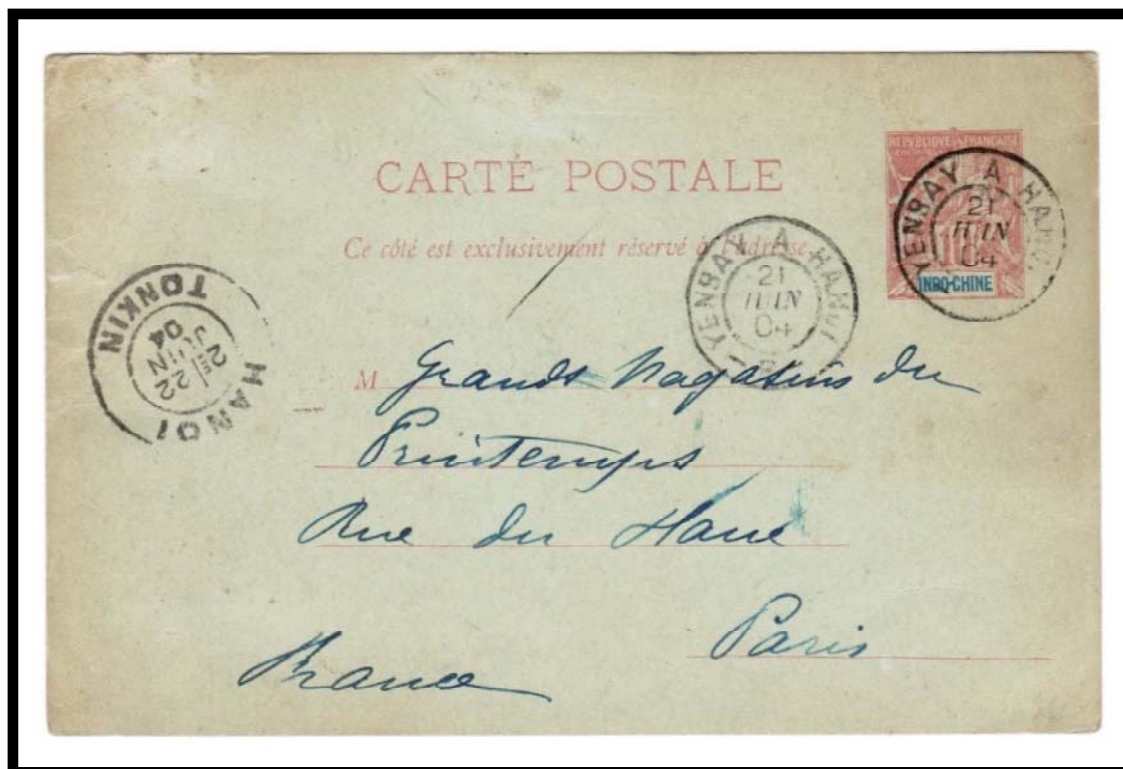 CARTE POSTALE
Ce côté est exclusivement réservé à l'adresse.
RÉPUBLIQUE FRANÇAISE
10
INDO-CHINE
YENBAY A HANOI
21
JUIN
04
YENBAY A HANOI
21
JUIN
04
HANOI
2E/22
JUIN
04
TONKIN
M Grands Magasins du
Printemps
Rue du Havre
Paris
France